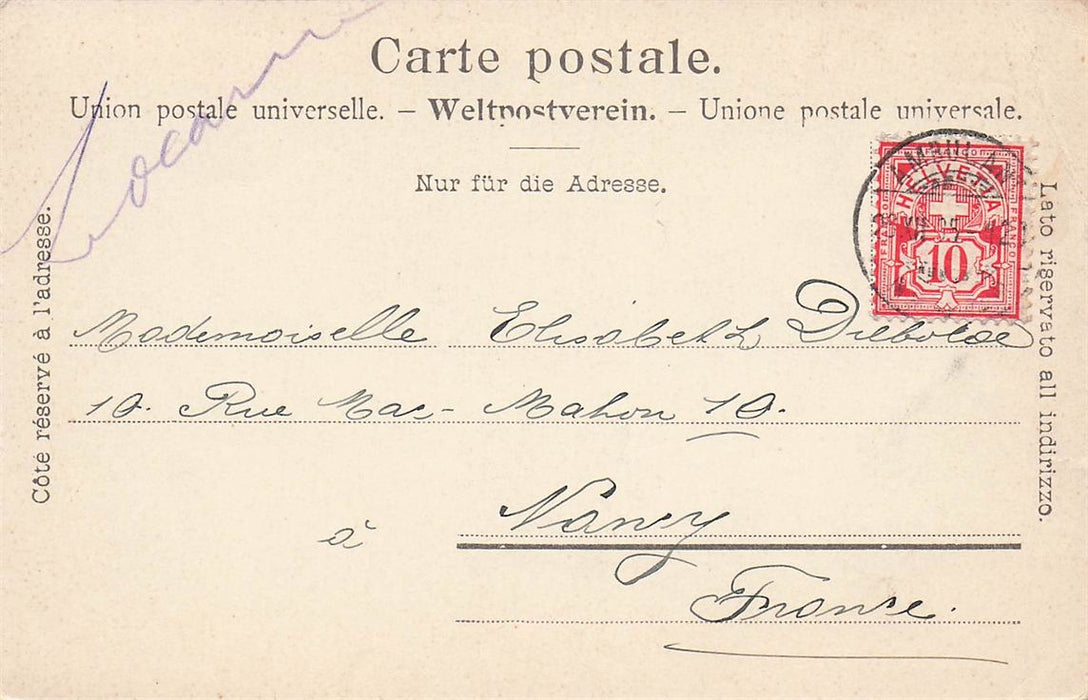 Carte postale.
Union postale universelle. – Weltpostverein. – Unione postale universale.
Nur für die Adresse.
Côté réservé à l'adresse.
Lato riservato all indirizzo.
AMBULANT
HELVETIA
FRANCO FRANCO
10
Mademoiselle Elisabeth Diebolde
10. Rue Mac-Mahon 10.
à Nancy
France.